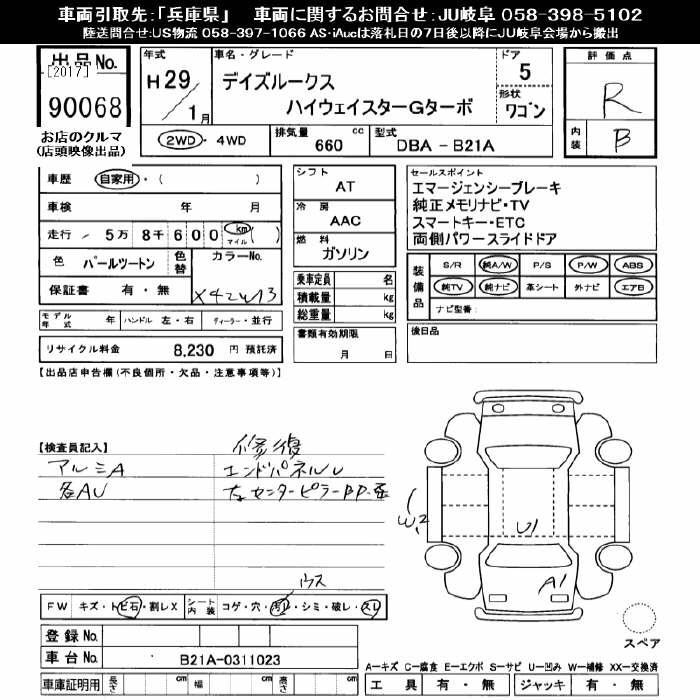 車両引取先:「兵庫県」 車両に関するお問合せ:JU岐阜 058-398-5102
陸送問合せ:US物流 058-397-1066 AS・iAucは落札日の7日後以降にJU岐阜会場から搬出
出品No.
[2017]
90068
お店のクルマ
(店頭映像出品)
年式
H29/1月
車名・グレード
デイズルークス
ハイウェイスターGターボ
ドア
5
形状
ワゴン
評価点
R
内装
B
2WD・4WD
排気量
660 cc
型式
DBA - B21A
車歴 自家用・( )
車検 年 月
走行 5万8千600 km マイル ( )
色 パールツートン
色替
カラーNo.
保証書 有・無
モデル年式 年 ハンドル 左・右 ディーラー・並行
リサイクル料金 8,230 円 預託済
シフト
AT
冷房
AAC
燃料
ガソリン
乗車定員 名
積載量 kg
総重量 kg
書類有効期限
月 日
セールスポイント
エマージェンシーブレーキ
純正メモリナビ・TV
スマートキー・ETC
両側パワースライドドア
装備品
S/R 純A/W P/S P/W ABS
純TV 純ナビ 革シート 外ナビ エアB
ナビ型番:
後日品
【出品店申告欄(不良個所・欠品・注意事項等)】
【検査員記入】
修復
アルミA
エンドパネルU
各AU
W2
U1
A1
ウス
FW キズ・トビ石・割レX シート内装 コゲ・穴・汚レ・シミ・破レ・スレ
登録No.
車台No. B21A-0311023
車庫証明用 長さ cm 幅 cm 高さ cm
スペア
A-キズ C-腐食 E-エクボ S-サビ U-凹み W-補修 XX-交換済
工具 有・無 ジャッキ 有・無